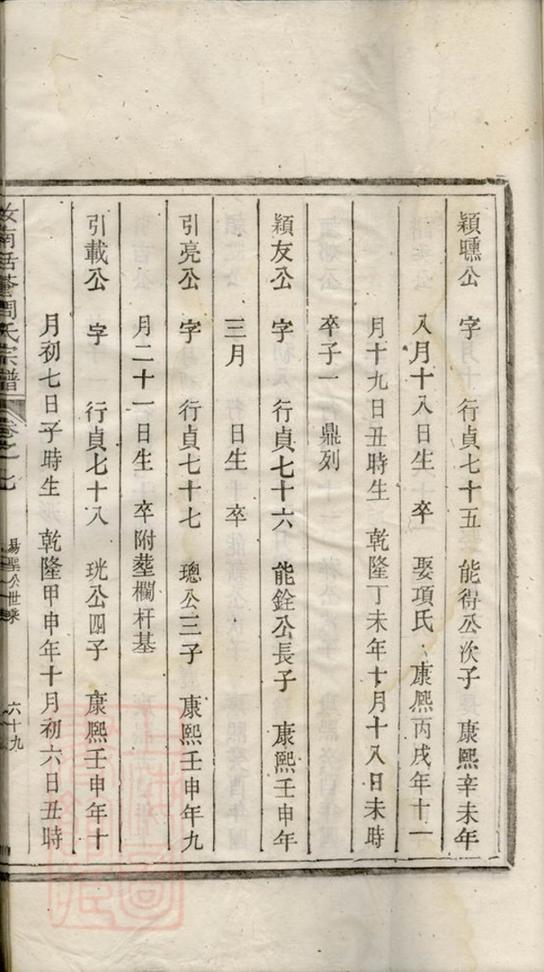 穎曛公 字 行貞七十五 能得公次子 康熙辛未年
八月十八日生 卒 娶項氏 康熙丙戌年十一
月十九日丑時生 乾隆丁未年七月十八日未時
卒子一 鼎列
穎友公 字 行貞七十六 能銓公長子 康熙壬申年
三月 日生 卒
引亮公 字 行貞七十七 璁公三子 康熙壬申年九
月二十一日生 卒附塟欄杆基
引載公 字 行貞七十八 珖公四子 康熙壬申年十
月初七日子時生 乾隆甲申年十月初六日丑時
汝南 周氏宗譜 卷之七 易聖公世系 六十九